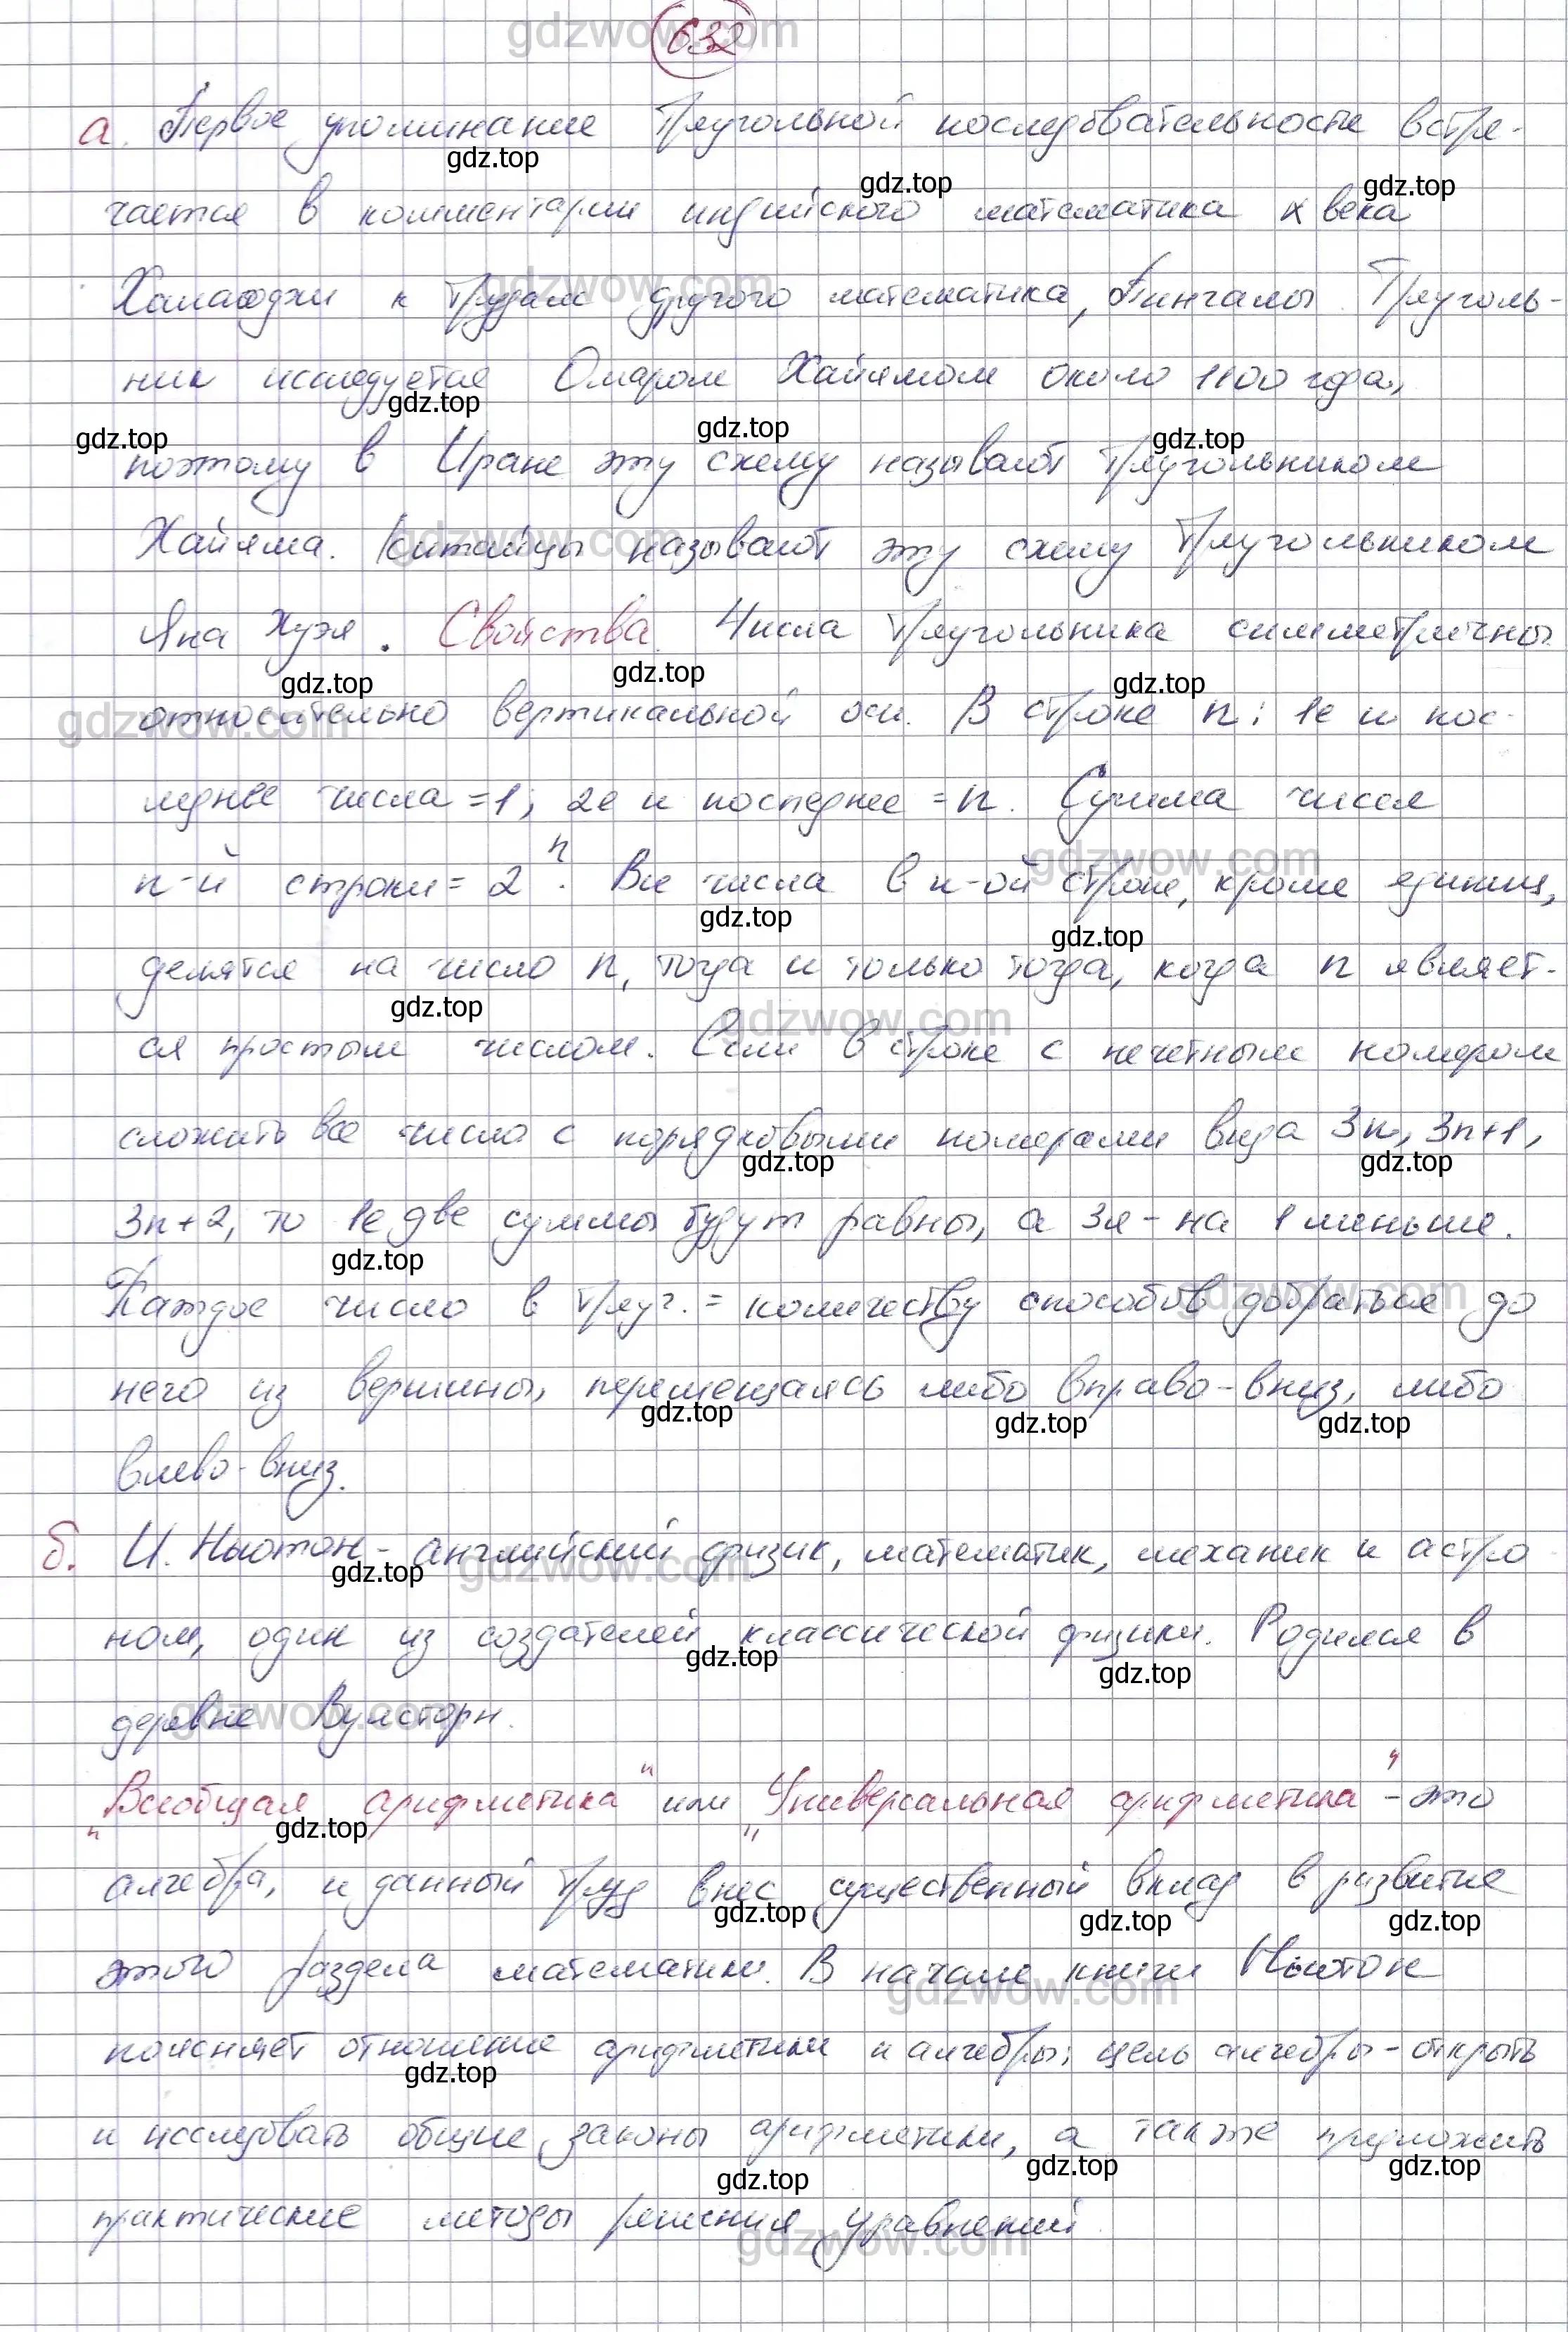 632
а. Первое упоминание треугольной последовательности встре-
чается в комментарии индийского математика X века
Халаюджи к трудам другого математика, Пингалы. Треуголь-
ник исследуется Омаром Хайямом около 1100 года,
поэтому в Иране эту схему называют треугольником
Хайяма. Китайцы называют эту схему треугольником
Яна Хуэя. Свойства. Числа треугольника симметричны
относительно вертикальной оси. В строке n: 1е и пос-
леднее числа =1; 2е и последнее = n. Сумма чисел
n-й строки = 2ⁿ. Все числа в n-ой строке, кроме единиц,
делятся на число n, тогда и только тогда, когда n являет-
ся простым числом. Если в строке с нечетным номером
сложить все число с порядковыми номерами вида 3n, 3n+1,
3n+2, то 1е две суммы будут равны, а 3я - на 1 меньше.
Каждое число в треуг. = количеству способов добраться до
него из вершины, перемещаясь либо вправо-вниз, либо
влево-вниз.
б. И. Ньютон - английский физик, математик, механик и астро
ном, один из создателей классической физики. Родился в
деревне Вулсторп.
"Всеобщая арифметика" или "Универсальная арифметика" - это
алгебра, и данный труд внес существенный вклад в развитие
этого раздела математики. В начале книги Ньютон
поясняет отношение арифметики и алгебры: цель алгебры - открыть
и исследовать общие законы арифметики, а также предложить
практические методы решения уравнений.